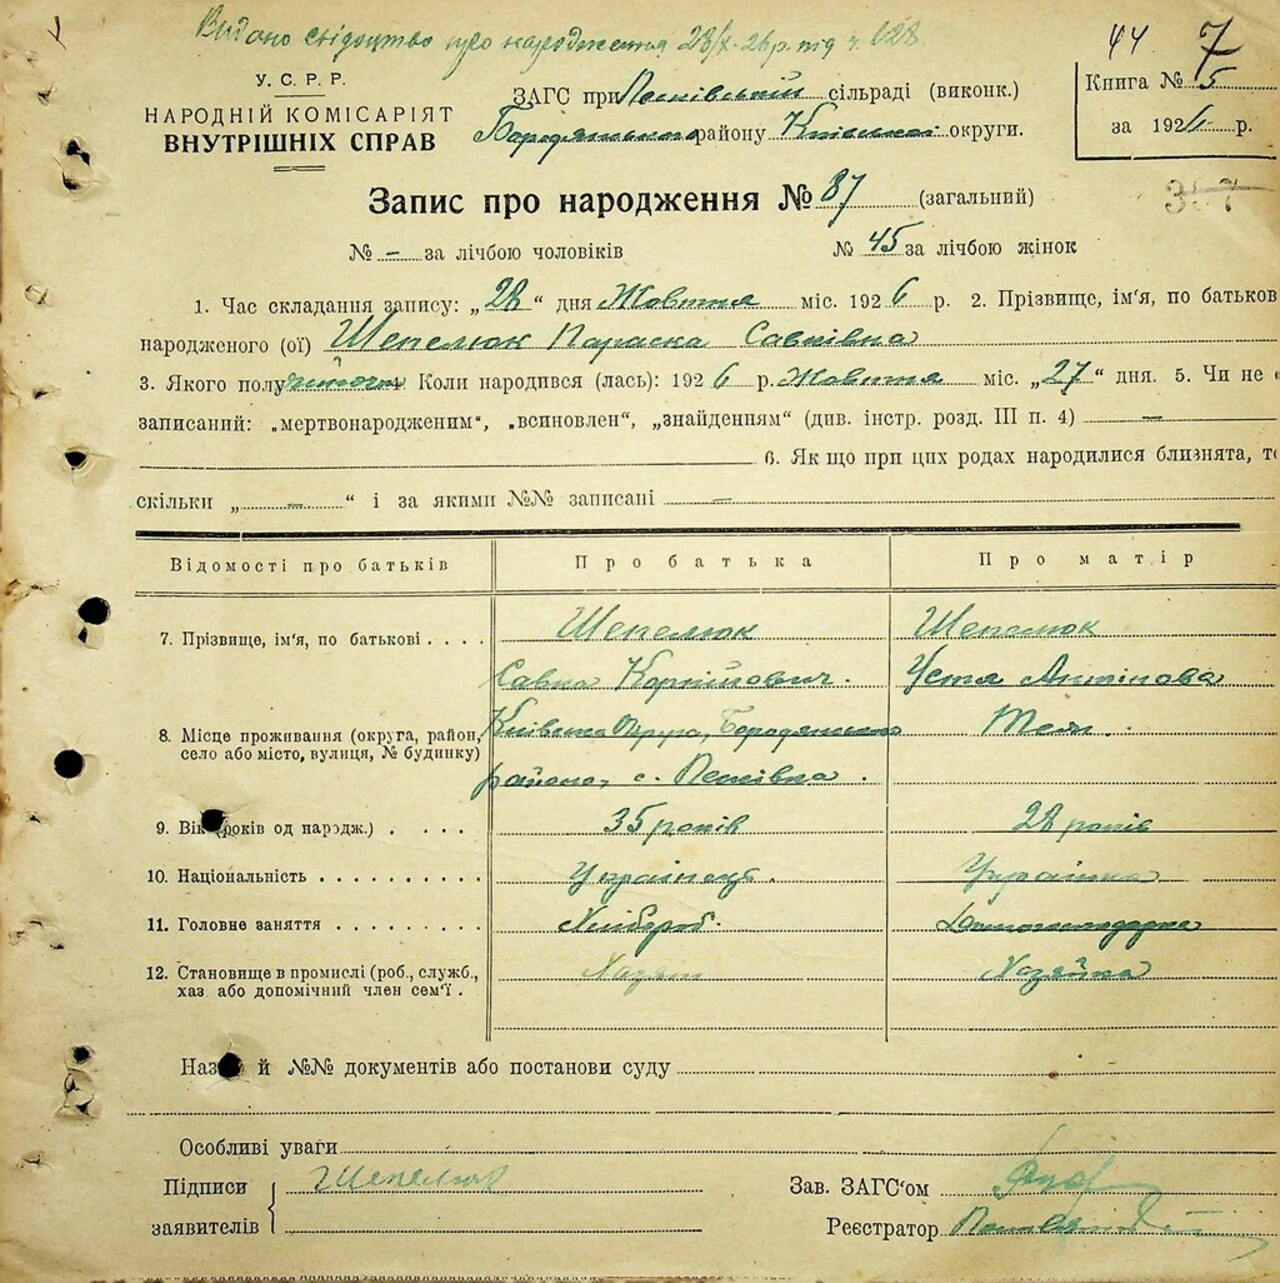 Видано свідоцтво про народження 28/X-26 р. під ч. 628.
44 7
У. С. Р. Р.
НАРОДНІЙ КОМІСАРІЯТ
ВНУТРІШНІХ СПРАВ
ЗАГС при Песківській сільраді (виконк.)
Бородянського району Київської округи.
Книга № 5
за 1926 р.
Запис про народження № 87 (загальний)
357
№ - за лічбою чоловіків № 45 за лічбою жінок
1. Час складання запису: „28“ дня Жовтня міс. 1926 р. 2. Прізвище, ім'я, по батьков
народженого (ої) Шепелюк Параска Савківна
3. Якого полу жіночи 4 Коли народився (лась): 1926 р. Жовтня міс. „27“ дня. 5. Чи не
записаний: „мертвонародженим“, „всиновлен“, „знайденням“ (див. інстр. розд. III п. 4) —
6. Як що при цих родах народилися близнята, то
скільки „—“ і за якими №№ записані —
Відомості про батьків Про батька Про матір
7. Прізвище, ім'я, по батькові . . . . Шепелюк Шепелюк
Савка Корнійович. Устя Антінова
8. Місце проживання (округа, район, Київська округа, Бородянського Теж.
село або місто, вулиця, № будинку) району, с. Песківка.
9. Вік (років од народж.) . . . . 35 років 28 років
10. Національність . . . . . . . . . . Українець. Українка
11. Головне заняття . . . . . . . . . Хлібороб. Домогосподарка
12. Становище в промислі (роб., служб., Хазяїн Хазяйка
хаз. або допомічний член сем'ї .
Наз й №№ документів або постанови суду
Особливі уваги
Підписи Шепелюк Зав. ЗАГС'ом
заявителів Реєстратор